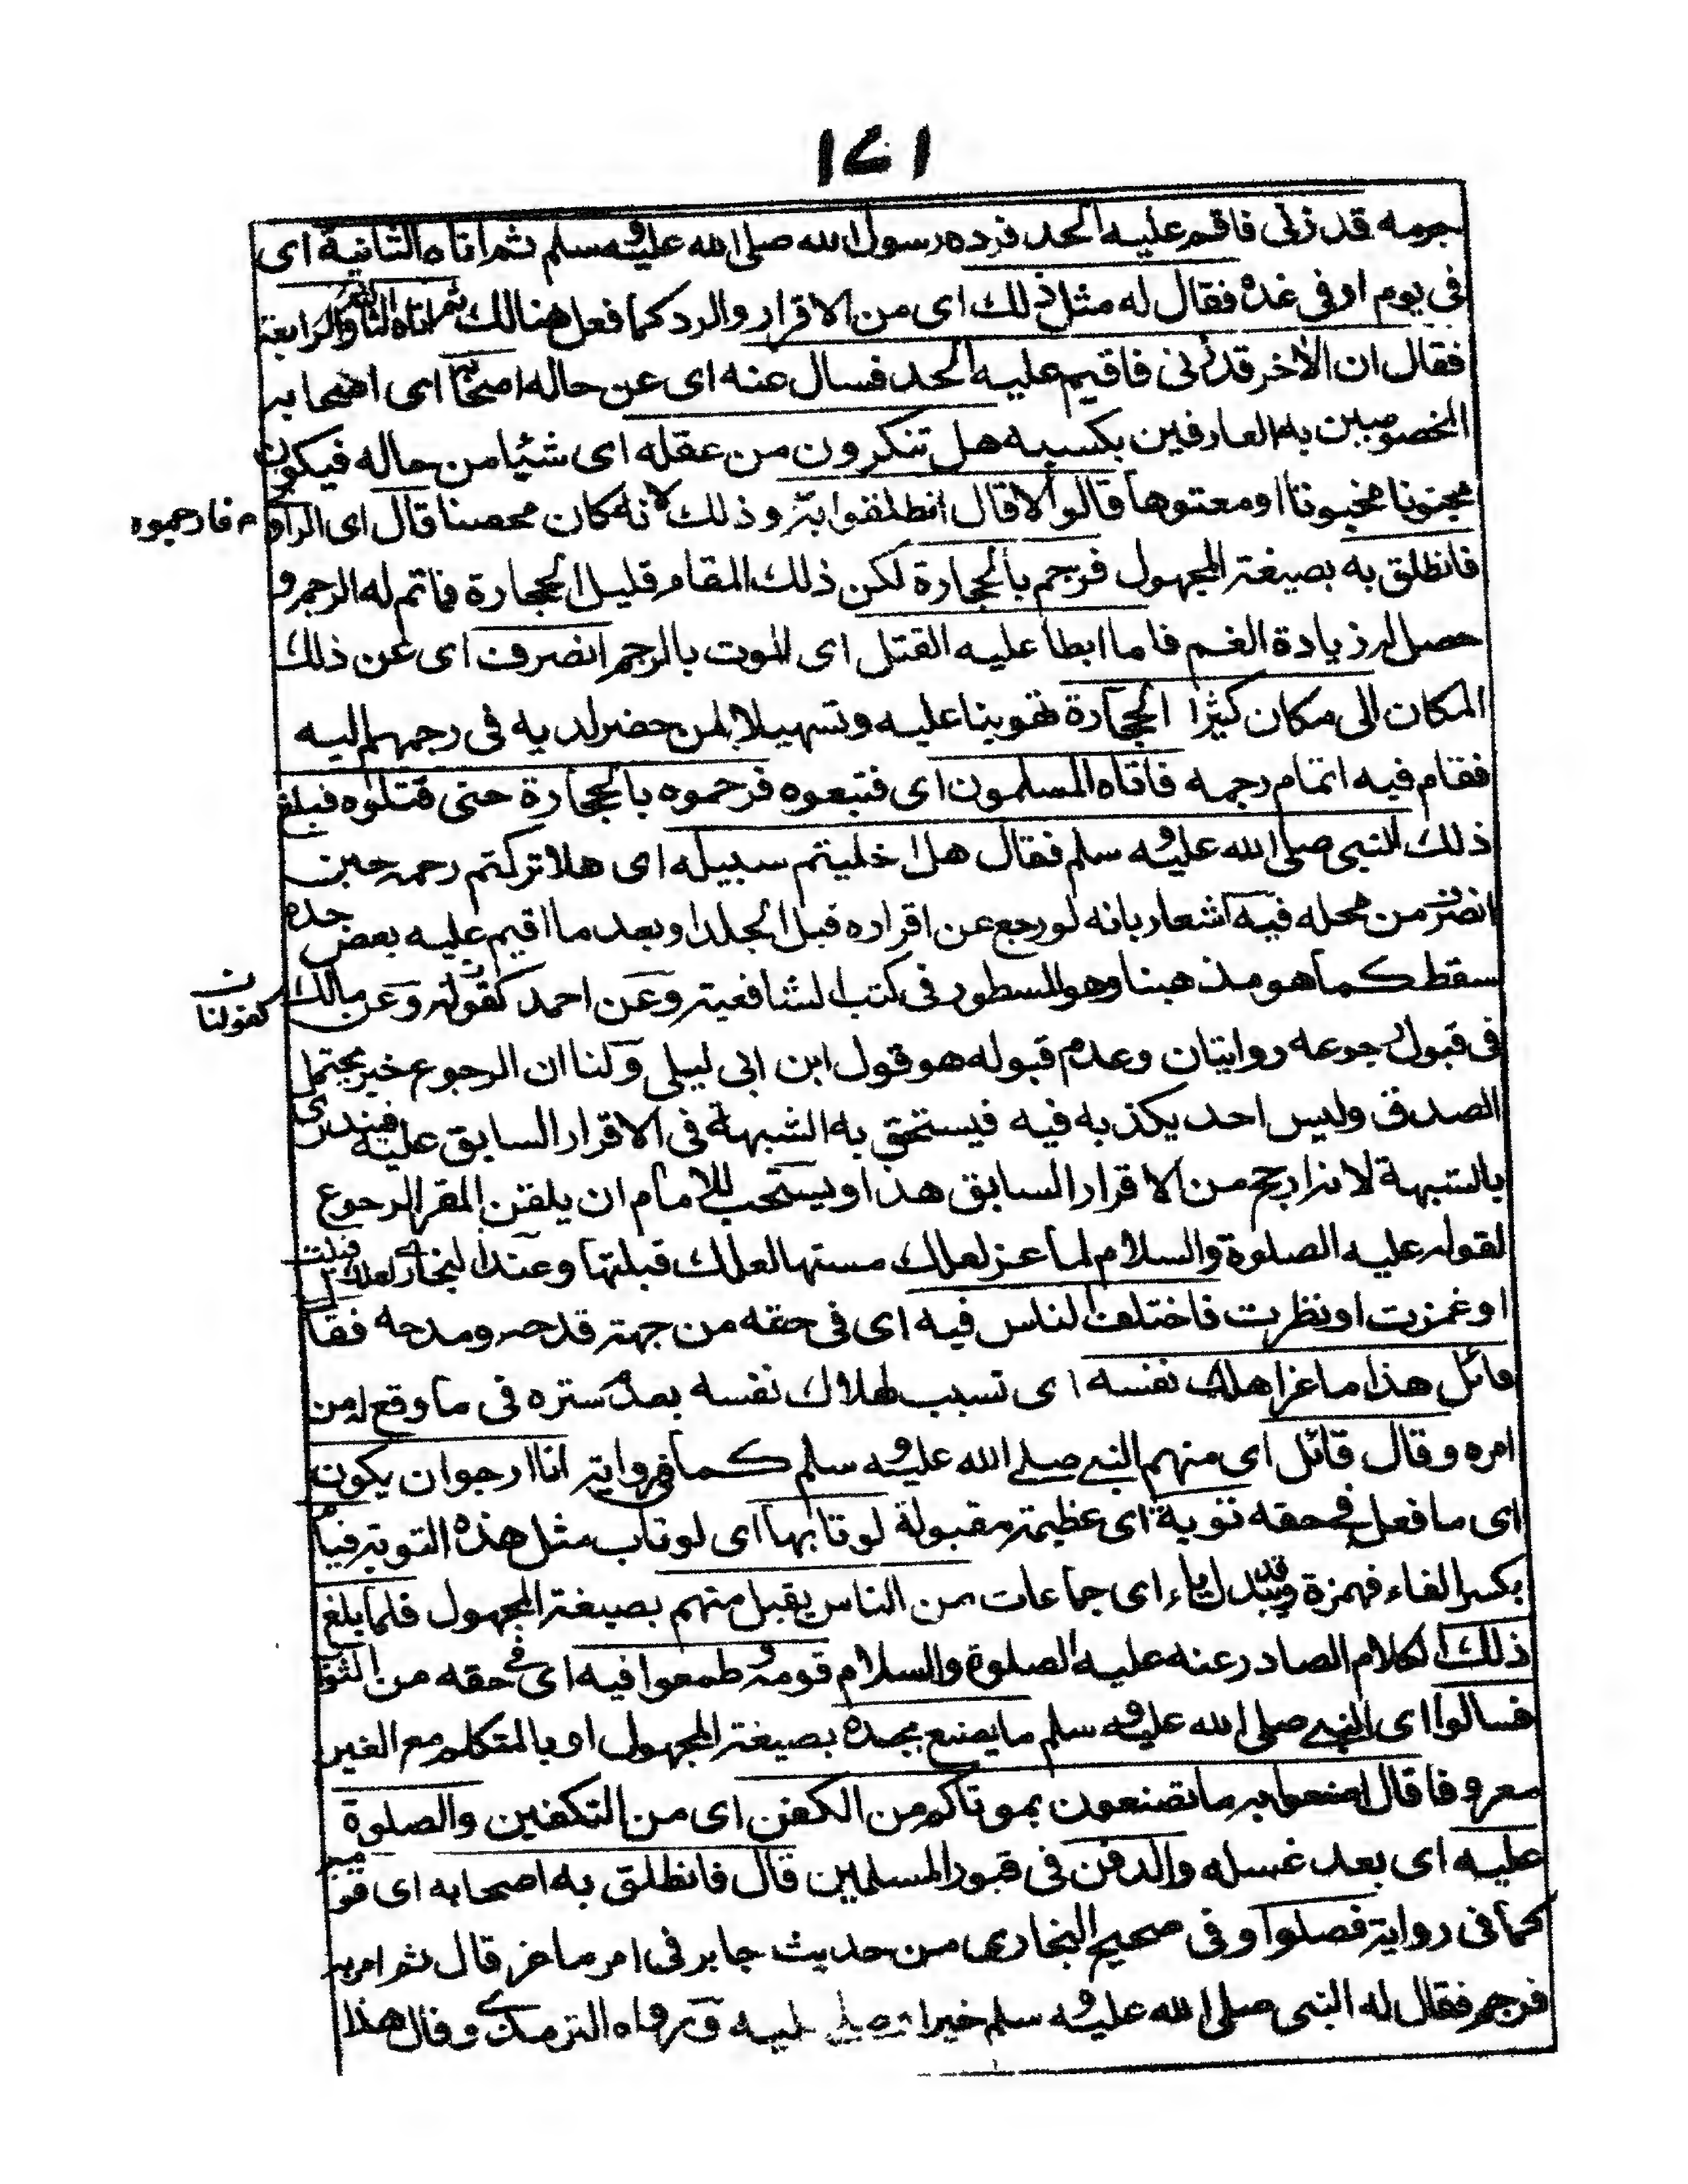 ١٧١
بجرمه قد زنى فاقم عليه الحد فرده رسول الله صلى الله عليه وسلم ثم اتاه الثانية اى
فى يوم او فى غده فقال له مثل ذلك اى من الاقرار والرد كما فعل هنالك ثم اتاه الثالثة والرابعة
فقال ان الاخر قد زنى فاقيم عليه الحد فسال عنه اى عن حاله اصحابه اى اصحابه
المخصوصين به العارفين بكسبه هل تنكرون من عقله اى شيئا من حاله فيكون
مجنونا مخبوتا او معتوها قالوا لا قال انطلقوا به وذلك لانه كان محصنا قال اى الراوى
فارجموه
فانطلق به بصيغة المجهول فرجم بالحجارة لكن ذلك المقام قليل الحجارة فما تم له الرجم و
حصل له زيادة الغم فاما ابطأ عليه القتل اى الموت بالرجم انصرف اى عن ذلك
المكان الى مكان كثير الحجارة تهوينا عليه وتسهيلا لمن حضر لديه فى رجمهم اليه
فقام فيه اتمام رجمه فاتاه المسلمون اى فتبعوه فرجموه بالحجارة حتى قتلوه فبلغ
ذلك النبى صلى الله عليه وسلم فقال هلا خليتم سبيله اى هلا تركتم رجمه حين
انصرف من محله فيه اشعار بانه لو رجع عن اقراره قبل الجلد او بعد ما اقيم عليه بعض حده
سقط كما هو مذهبنا وهو المسطور فى كتب الشافعية وعن احمد كقوله وعن مالك
كقولنا
فى قبول رجوعه روايتان وعدم قبوله هو قول ابن ابى ليلى ولنا ان الرجوع خبر يحتمل
الصدق وليس احد يكذبه فيه فيستحق به الشبهة فى الاقرار السابق عليه فيندرى
بالشبهة لانه ارجح من الاقرار السابق هذا ويستحب للامام ان يلقن المقر الرجوع
لقوله عليه الصلوة والسلام لماعز لعلك مستها لعلك قبلتها وعند البخارى لعلك قبلت
او غمزت او نظرت فاختلف الناس فيه اى فى حقه من جهة قدحه ومدحه فقال
قائل هذا ماعز اهلك نفسه اى تسبب لهلاك نفسه بعدم ستره فى ما وقع له من
امره وقال قائل اى منهم النبى صلى الله عليه وسلم كما فى رواية انا ارجو ان يكون
اى ما فعل فى حقه توبة اى عظيمة مقبولة لو تابها اى لو تاب مثل هذه التوبة فيام
بكسر الفاء فهمزة وقد يبدل ياء اى جماعات من الناس يقبل منهم بصيغة المجهول فلما بلغ
ذلك الكلام الصادر عنه عليه الصلوة والسلام قومه وطمعوا فيه اى فى حقه من الثوا
فسالوا اى النبى صلى الله عليه وسلم ما يصنع بجسده بصيغة المجهول او بالمتكلم مع الغير
معروفا قال اصنعوا به ما تصنعون بموتاكم من الكفن اى من التكفين والصلوة
عليه اى بعد غسله والدفن فى قبور المسلمين قال فانطلق به اصحابه اى قومه
كما فى رواية فصلوا وفى صحيح البخارى من حديث جابر فى امر ماعز قال ثم امر به
فرجم فقال له النبى صلى الله عليه وسلم خيرا وصلى عليه ورواه الترمذى وقال هذا